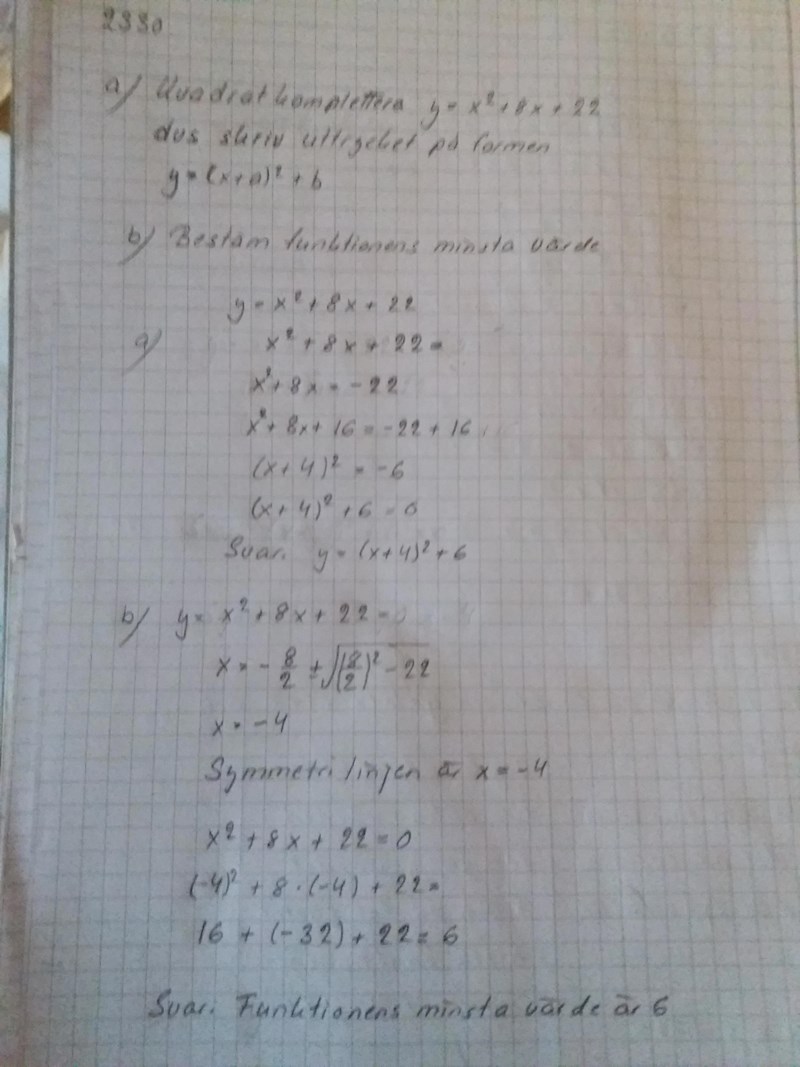 2330
a) Kvadratkomplettera y = x² + 8x + 22
dvs skriv uttrycket på formen
y = (x+a)² + b
b) Bestäm funktionens minsta värde
y = x² + 8x + 22
a) x² + 8x + 22 =
x² + 8x = -22
x² + 8x + 16 = -22 + 16
(x+4)² = -6
(x+4)² + 6 = 0
Svar. y = (x+4)² + 6
b) y = x² + 8x + 22 = 0
x = - 8/2 ± √(8/2)² - 22
x = -4
Symmetri linjen är x = -4
x² + 8x + 22 = 0
(-4)² + 8 · (-4) + 22 =
16 + (-32) + 22 = 6
Svar. Funktionens minsta värde är 6